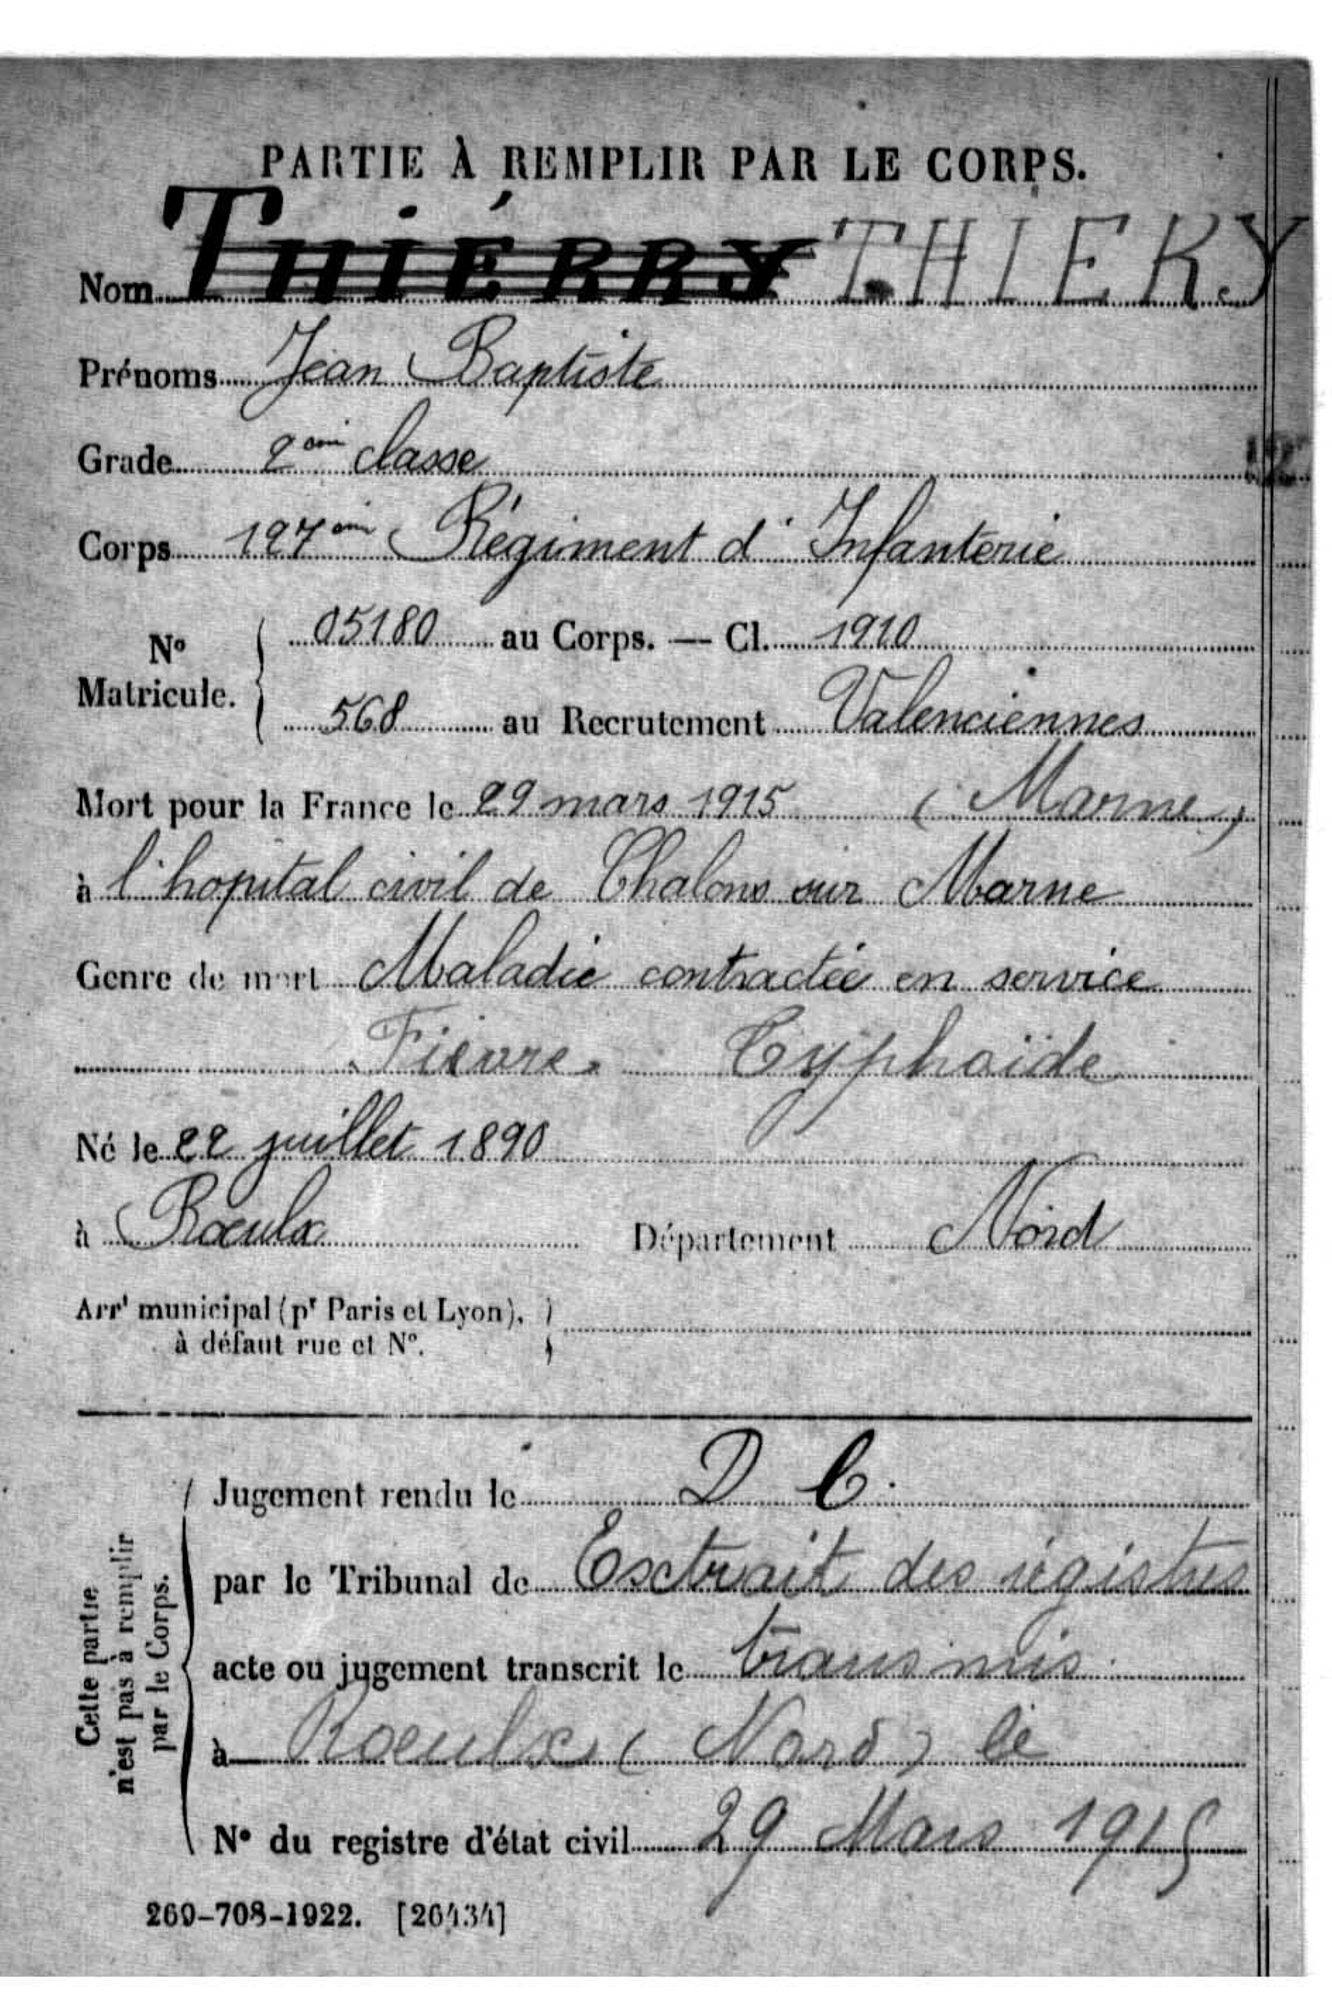 PARTIE À REMPLIR PAR LE CORPS.
Nom THIÉRRY THIERY
Prénoms Jean Baptiste
Grade 2ème classe
Corps 127ème Régiment d'Infanterie
No Matricule. { 05180 au Corps. — Cl. 1910
568 au Recrutement Valenciennes
Mort pour la France le 29 mars 1915 (Marne)
à l'hopital civil de Chalons sur Marne
Genre de mort Maladie contractée en service
Fièvre Typhoïde
Né le 22 juillet 1890
à Rœulx Département Nord
Arrt municipal (pr Paris et Lyon), }
à défaut rue et No.
Cette partie n'est pas à remplir par le Corps.
Jugement rendu le D C.
par le Tribunal de Extrait des régistres
acte ou jugement transcrit le transmis
à Roeulx (Nord) le
No du registre d'état civil 29 Mars 1915
269-708-1922. [26434]